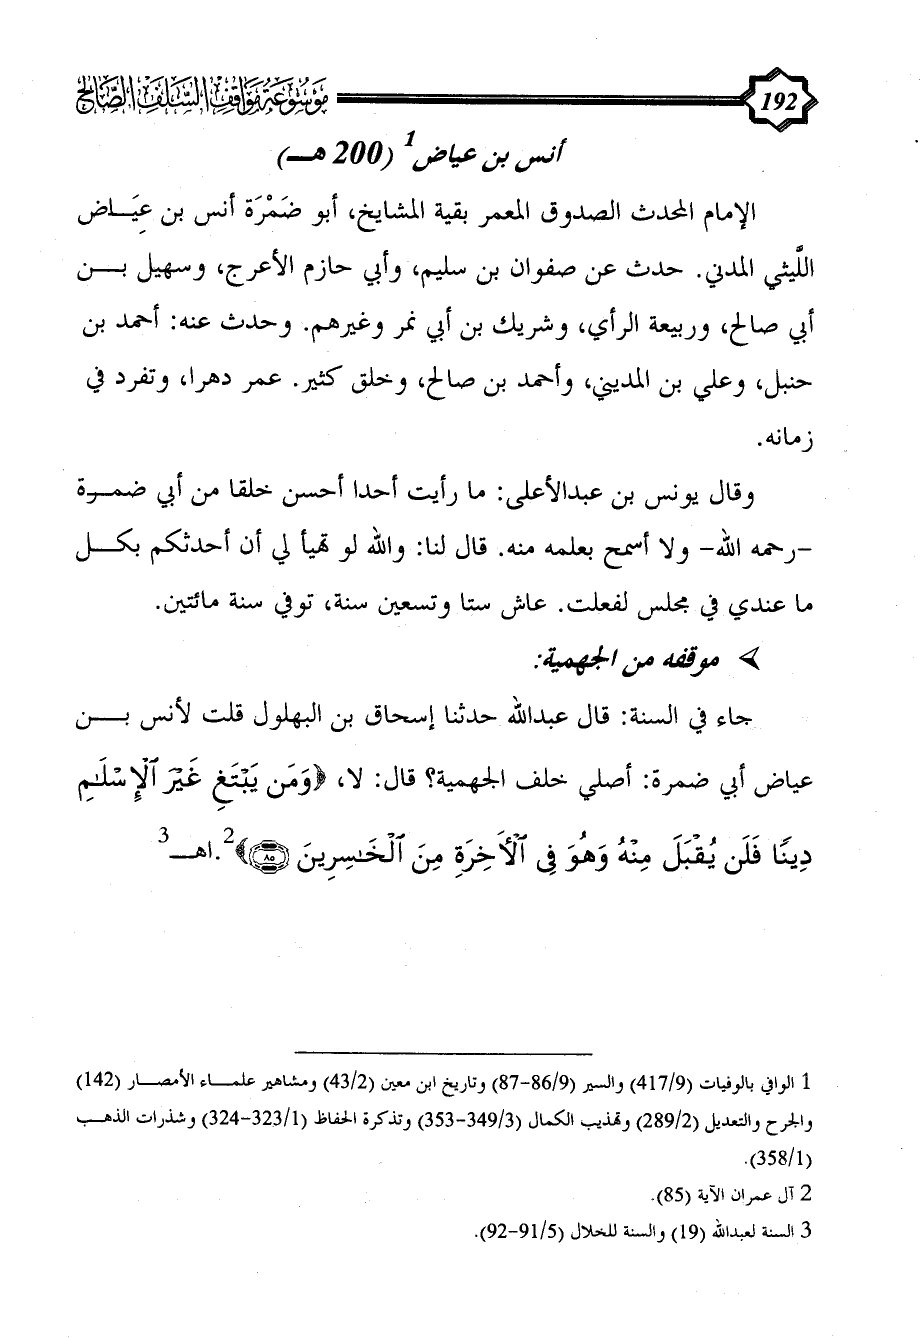 موسوعة مواقف السلف الصالح
192
أنس بن عياض1 (200 هـ)
الإمام المحدث الصدوق المعمر بقية المشايخ، أبو ضَمْرَة أنس بن عِيَــاض
اللَّيثي المدني. حدث عن صفوان بن سليم، وأبي حازم الأعرج، وسهيل بــن
أبي صالح، وربيعة الرأي، وشريك بن أبي نمر وغيرهم. وحدث عنه: أحمد بن
حنبل، وعلي بن المديني، وأحمد بن صالح، وخلق كثير. عمر دهرا، وتفرد في
زمانه.
وقال يونس بن عبدالأعلى: ما رأيت أحدا أحسن خلقا من أبي ضمــرة
-رحمه الله- ولا أسمح بعلمه منه. قال لنا: والله لو تهيأ لي أن أحدثكم بكــل
ما عندي في مجلس لفعلت. عاش ستا وتسعين سنة، توفي سنة مائتين.
➤ موقفه من الجهمية:
جاء في السنة: قال عبدالله حدثنا إسحاق بن البهلول قلت لأنس بــن
عياض أبي ضمرة: أصلي خلف الجهمية؟ قال: لا، ﴿وَمَن يَبْتَغِ غَيْرَ ٱلْإِسْلَٰمِ
دِينًا فَلَن يُقْبَلَ مِنْهُ وَهُوَ فِى ٱلْأَخِرَةِ مِنَ ٱلْخَٰسِرِينَ ۝٨٥﴾2.اهــ3
1 الوافي بالوفيات (417/9) والسير (86/9-87) وتاريخ ابن معين (43/2) ومشاهير علمــاء الأمصــار (142)
والجرح والتعديل (289/2) وتهذيب الكمال (349/3-353) وتذكرة الحفاظ (323/1-324) وشذرات الذهــب
(358/1).
2 آل عمران الآية (85).
3 السنة لعبدالله (19) والسنة للخلال (91/5-92).